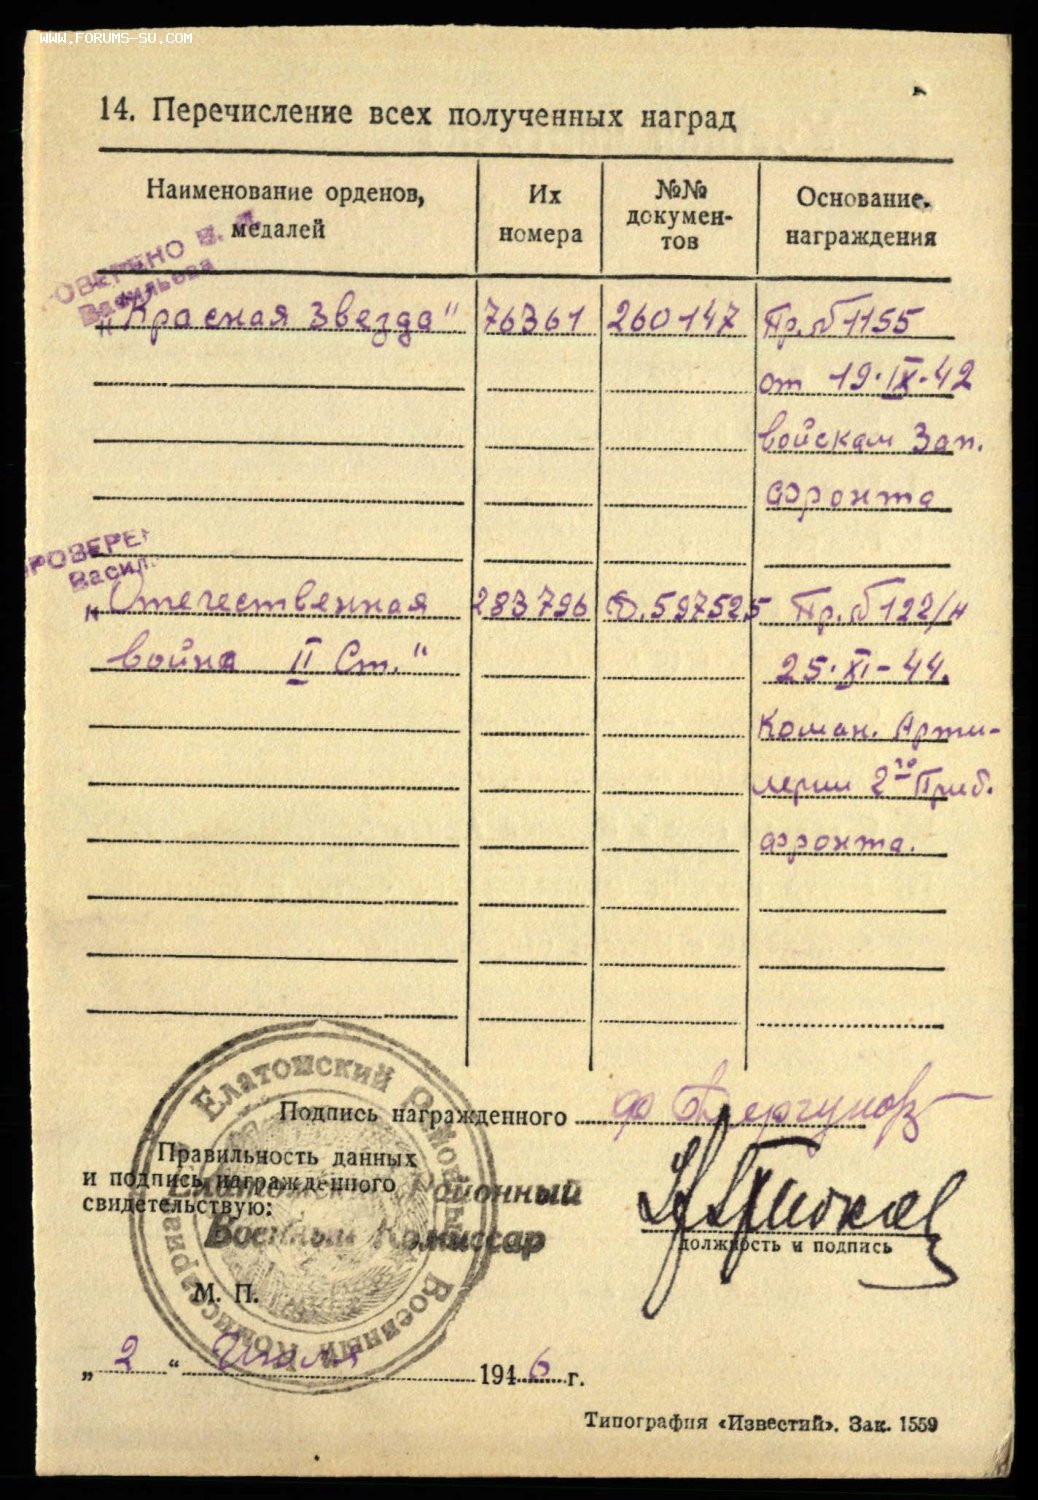 WWW.FORUMS-SU.COM
14. Перечисление всех полученных наград
Наименование орденов, медалей
Их номера
№№ докумен-тов
Основание награждения
ПРОВЕРЕНО В. Д.
Васильева
„Красная Звезда" 76361 260147 Пр. № 1155
от 19·IX·42
войскам Зап.
фронта
ПРОВЕРЕН
Васил
„Отечественная 283796 Д.597525 Пр. № 122/н
война II Ст." 25·XI-44.
Коман. Арти-
лерии 2го Приб.
фронта.
Подпись награжденного
Правильность данных
и подпись награжденного
свидетельствую:
Елатомский Районный
Военный Комиссар
должность и подпись
М. П.
Елатомский Районный Военный Комиссариат
„2" Июля 1946 г.
Типография «Известий». Зак. 1559